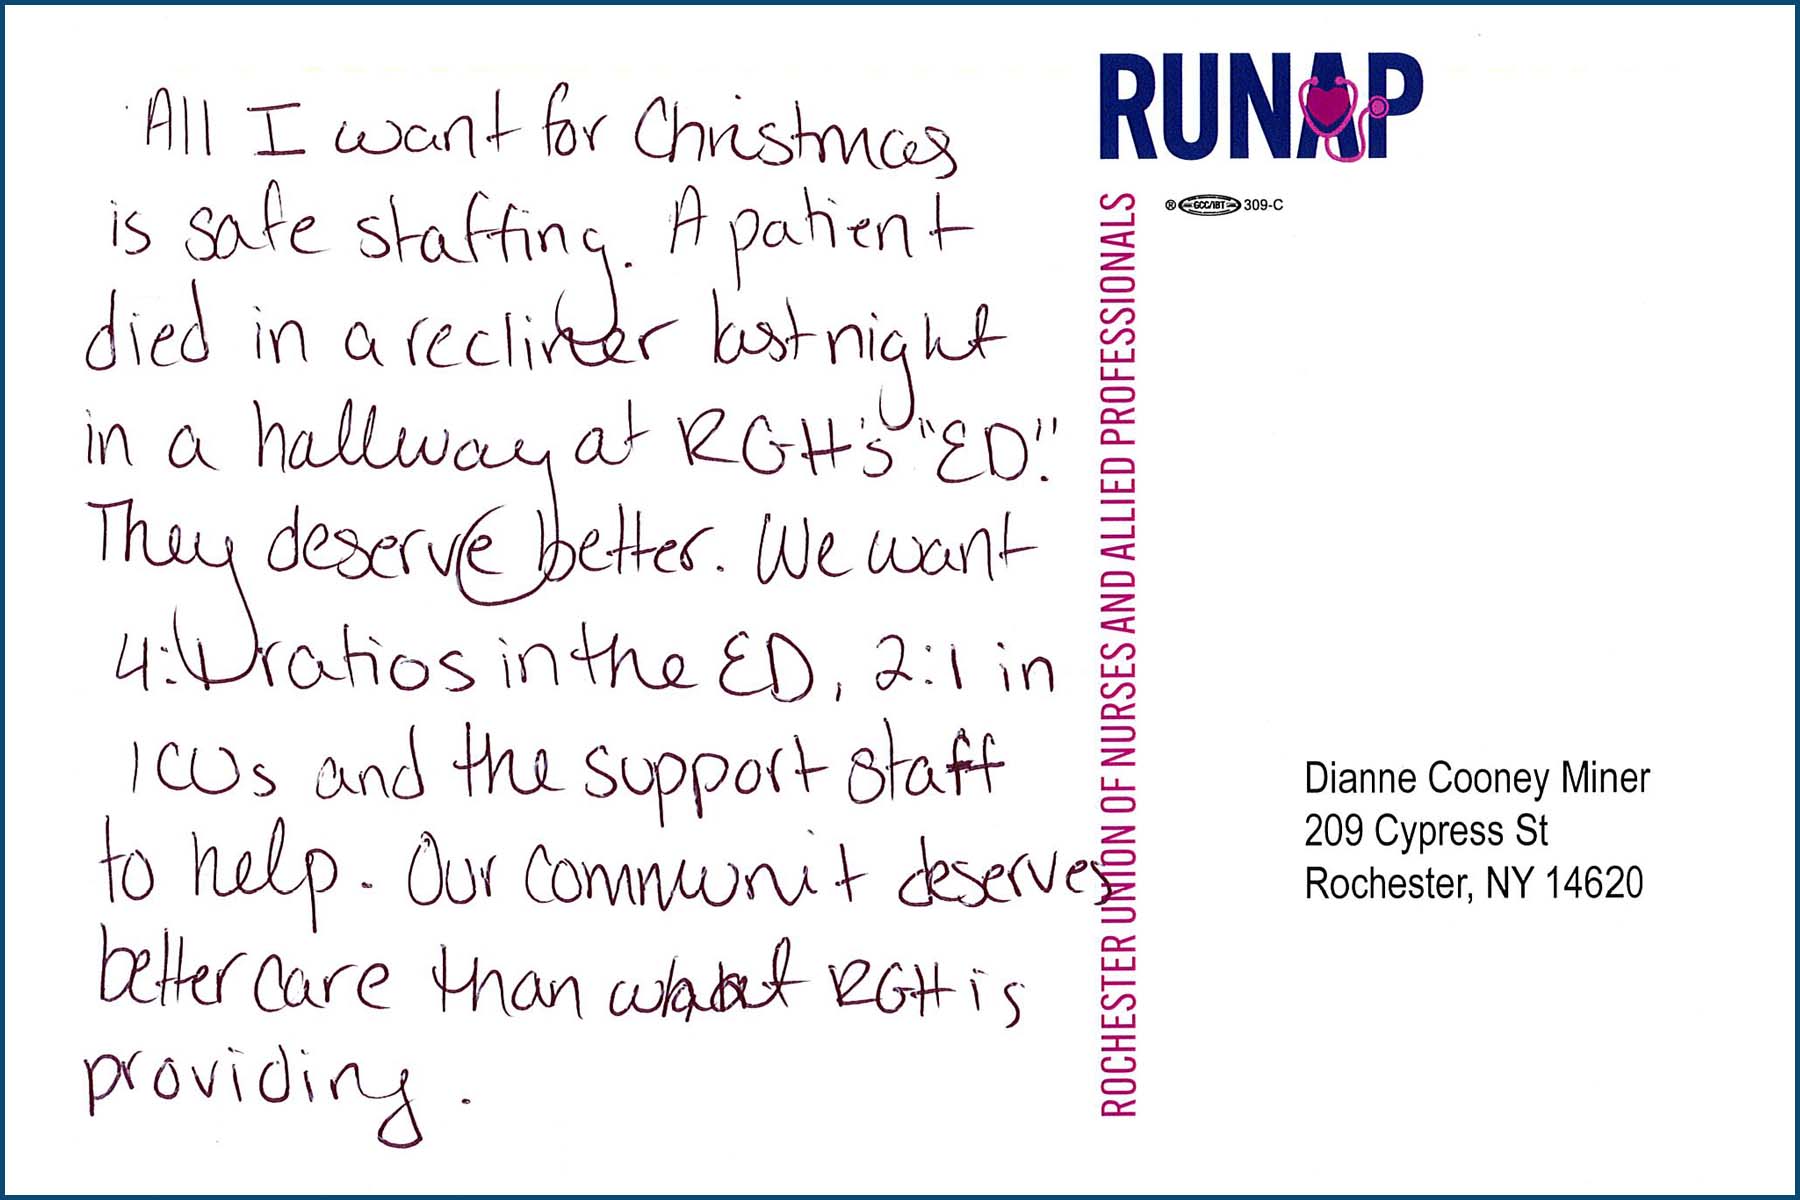 All I want for Christmas
is safe staffing. A patient
died in a recliner last night
in a hallway at RGH's "ED."
They deserve better. We want
4:1 ratios in the ED, 2:1 in
ICUs and the support staff
to help. Our communit deserves
better care than what RGH is
providing.
RUNAP
® GCC/IBT 309-C
ROCHESTER UNION OF NURSES AND ALLIED PROFESSIONALS
Dianne Cooney Miner
209 Cypress St
Rochester, NY 14620